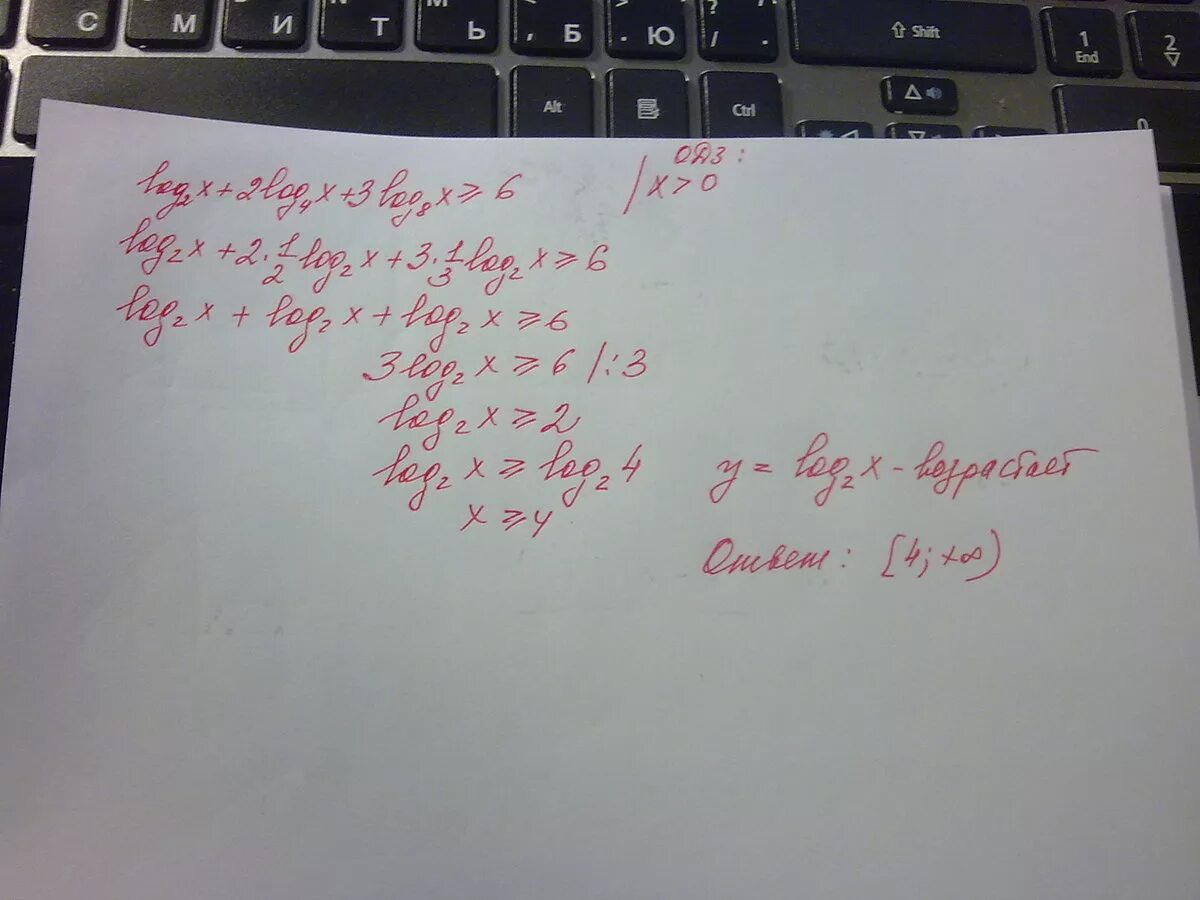 С М И Т Ь , Б . Ю ? / . ⇧ Shift 1 End 2
Alt Ctrl 0
log₂x + 2log₄x + 3log₈x ≥ 6
ОДЗ:
x > 0
log₂x + 2·1/2 log₂x + 3·1/3 log₂x ≥ 6
log₂x + log₂x + log₂x ≥ 6
3log₂x ≥ 6 /:3
log₂x ≥ 2
log₂x ≥ log₂4
y = log₂x - возрастает
x ≥ 4
Ответ: [4; +∞)